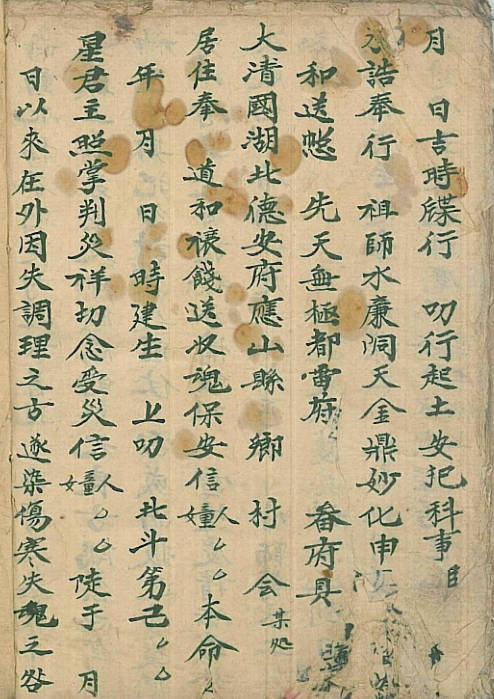 月　日吉時牒行　叩行起土安扼科事臣
誥奉行　祖師水廉洞天金鼎妙化申
和送愆　先天無極都雷府　畚府具
大清國湖北德安府應山縣　鄉　村　会某处
居住奉　道和禳餞送收魂保安信人女童厶厶本命
年　月　日　時建生　上叩　北斗第己厶厶
星君主照掌判災祥切念受災信人女童厶厶陡于　月
日以來在外因失調理之古遂染傷寒失魂之咎